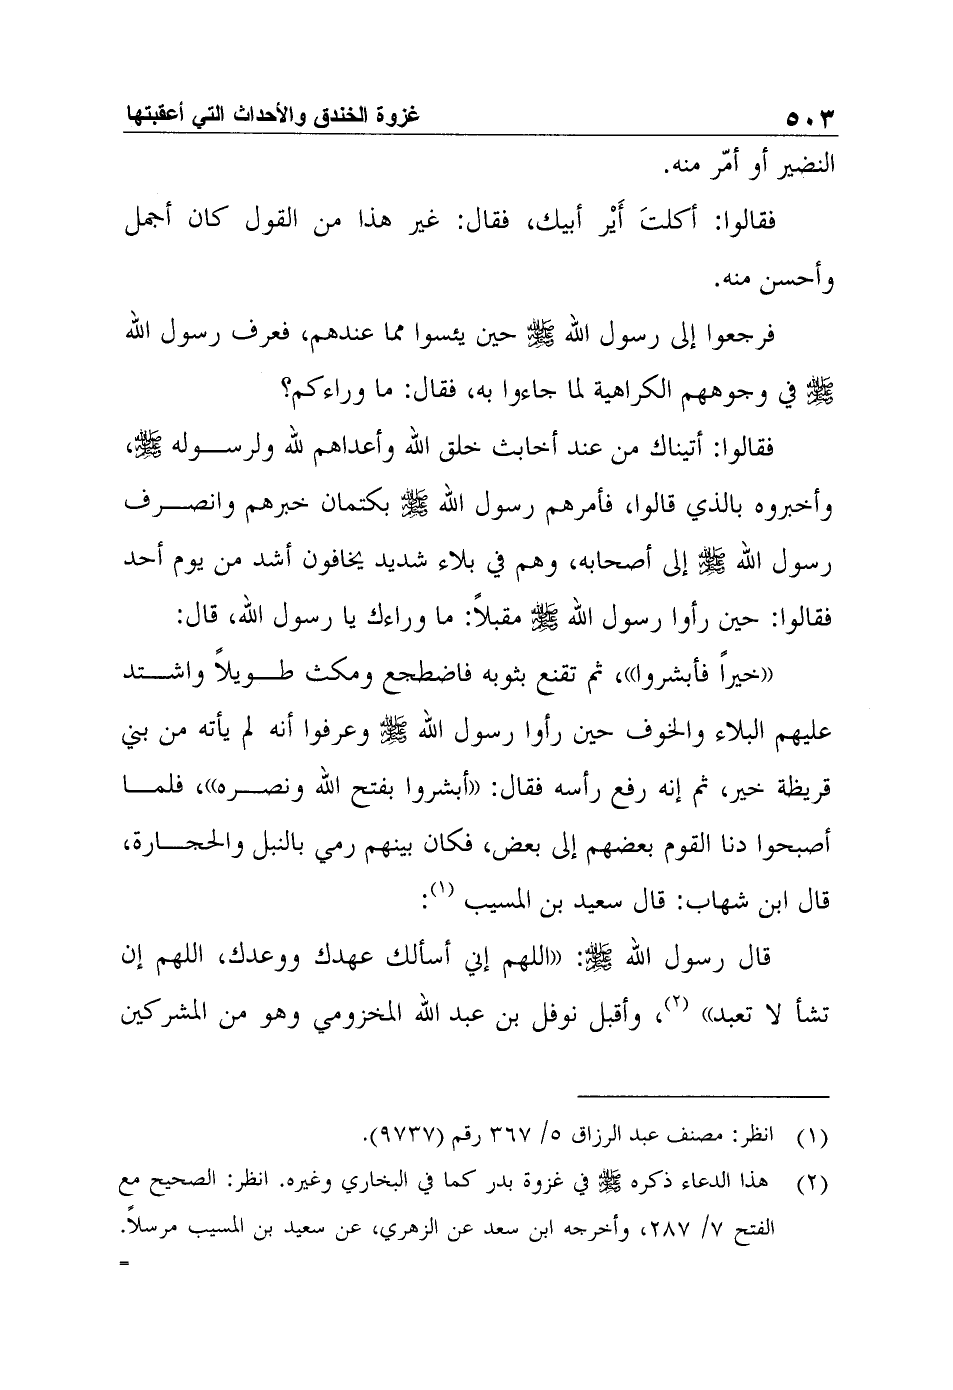 ٥٠٣ غزوة الخندق والأحداث التي أعقبتها
النضير أو أمّر منه.
فقالوا: أكلتَ أَيْر أبيك، فقال: غير هذا من القول كان أجمل
وأحسن منه.
فرجعوا إلى رسول الله ﷺ حين يئسوا مما عندهم، فعرف رسول الله
ﷺ في وجوههم الكراهية لما جاءوا به، فقال: ما وراءكم؟
فقالوا: أتيناك من عند أخابث خلق الله وأعداهم لله ولرسوله ﷺ،
وأخبروه بالذي قالوا، فأمرهم رسول الله ﷺ بكتمان خبرهم وانصرف
رسول الله ﷺ إلى أصحابه، وهم في بلاء شديد يخافون أشد من يوم أحد
فقالوا: حين رأوا رسول الله ﷺ مقبلاً: ما وراءك يا رسول الله، قال:
«خيراً فأبشروا»، ثم تقنع بثوبه فاضطجع ومكث طويلاً واشتد
عليهم البلاء والخوف حين رأوا رسول الله ﷺ وعرفوا أنه لم يأته من بني
قريظة خير، ثم إنه رفع رأسه فقال: «أبشروا بفتح الله ونصره»، فلما
أصبحوا دنا القوم بعضهم إلى بعض، فكان بينهم رمي بالنبل والحجارة،
قال ابن شهاب: قال سعيد بن المسيب (١):
قال رسول الله ﷺ: «اللهم إني أسألك عهدك ووعدك، اللهم إن
تشأ لا تعبد» (٢)، وأقبل نوفل بن عبد الله المخزومي وهو من المشركين
(١) انظر: مصنف عبد الرزاق ٥/ ٣٦٧ رقم (٩٧٣٧).
(٢) هذا الدعاء ذكره ﷺ في غزوة بدر كما في البخاري وغيره. انظر: الصحيح مع
الفتح ٧/ ٢٨٧، وأخرجه ابن سعد عن الزهري، عن سعيد بن المسيب مرسلاً.
=